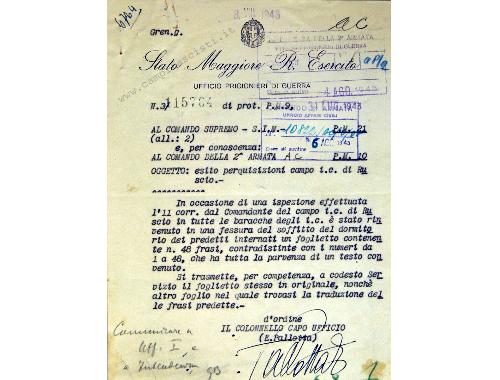 6764
Gren.G.
8 VII 1943
AC
2ª ARMATA
Stato Maggiore R. Esercito
UFFICIO PRIGIONIERI DI GUERRA
4 AGO. 1943
N.3/15764 di prot. P.M.9,
UFFICIO AFFARI CIVILI
AL COMANDO SUPREMO - S.I.M.- P.M. 21
(all.: 2)
6 1943
e, per conoscenza:
AL COMANDO DELLA 2ª ARMATA AC P.M. 10
OGGETTO: esito perquisizioni campo i.c. di Ru
scio.-
In occasione di una ispezione effettuata
l'11 corr. dal Comandante del campo i.c. di Ru
scio in tutte le baracche degli i.c. è stato rin
venuto in una fessura del soffitto del dormito
rio dei predetti internati un foglietto contenen
te n. 48 frasi, contradistinte con i numeri da
1 a 48, che ha tutta la parvenza di un testo con
venuto.
Si trasmette, per competenza, a codesto ser
vizio il foglietto stesso in originale, nonchè
altro foglio nel quale trovasi la traduzione del
le frasi predette.-
d'ordine
IL COLONNELLO CAPO UFFICIO
(E.Pallotta)
Comunicare a
Uff. I e
a
Pallotta
www.campifascisti.it